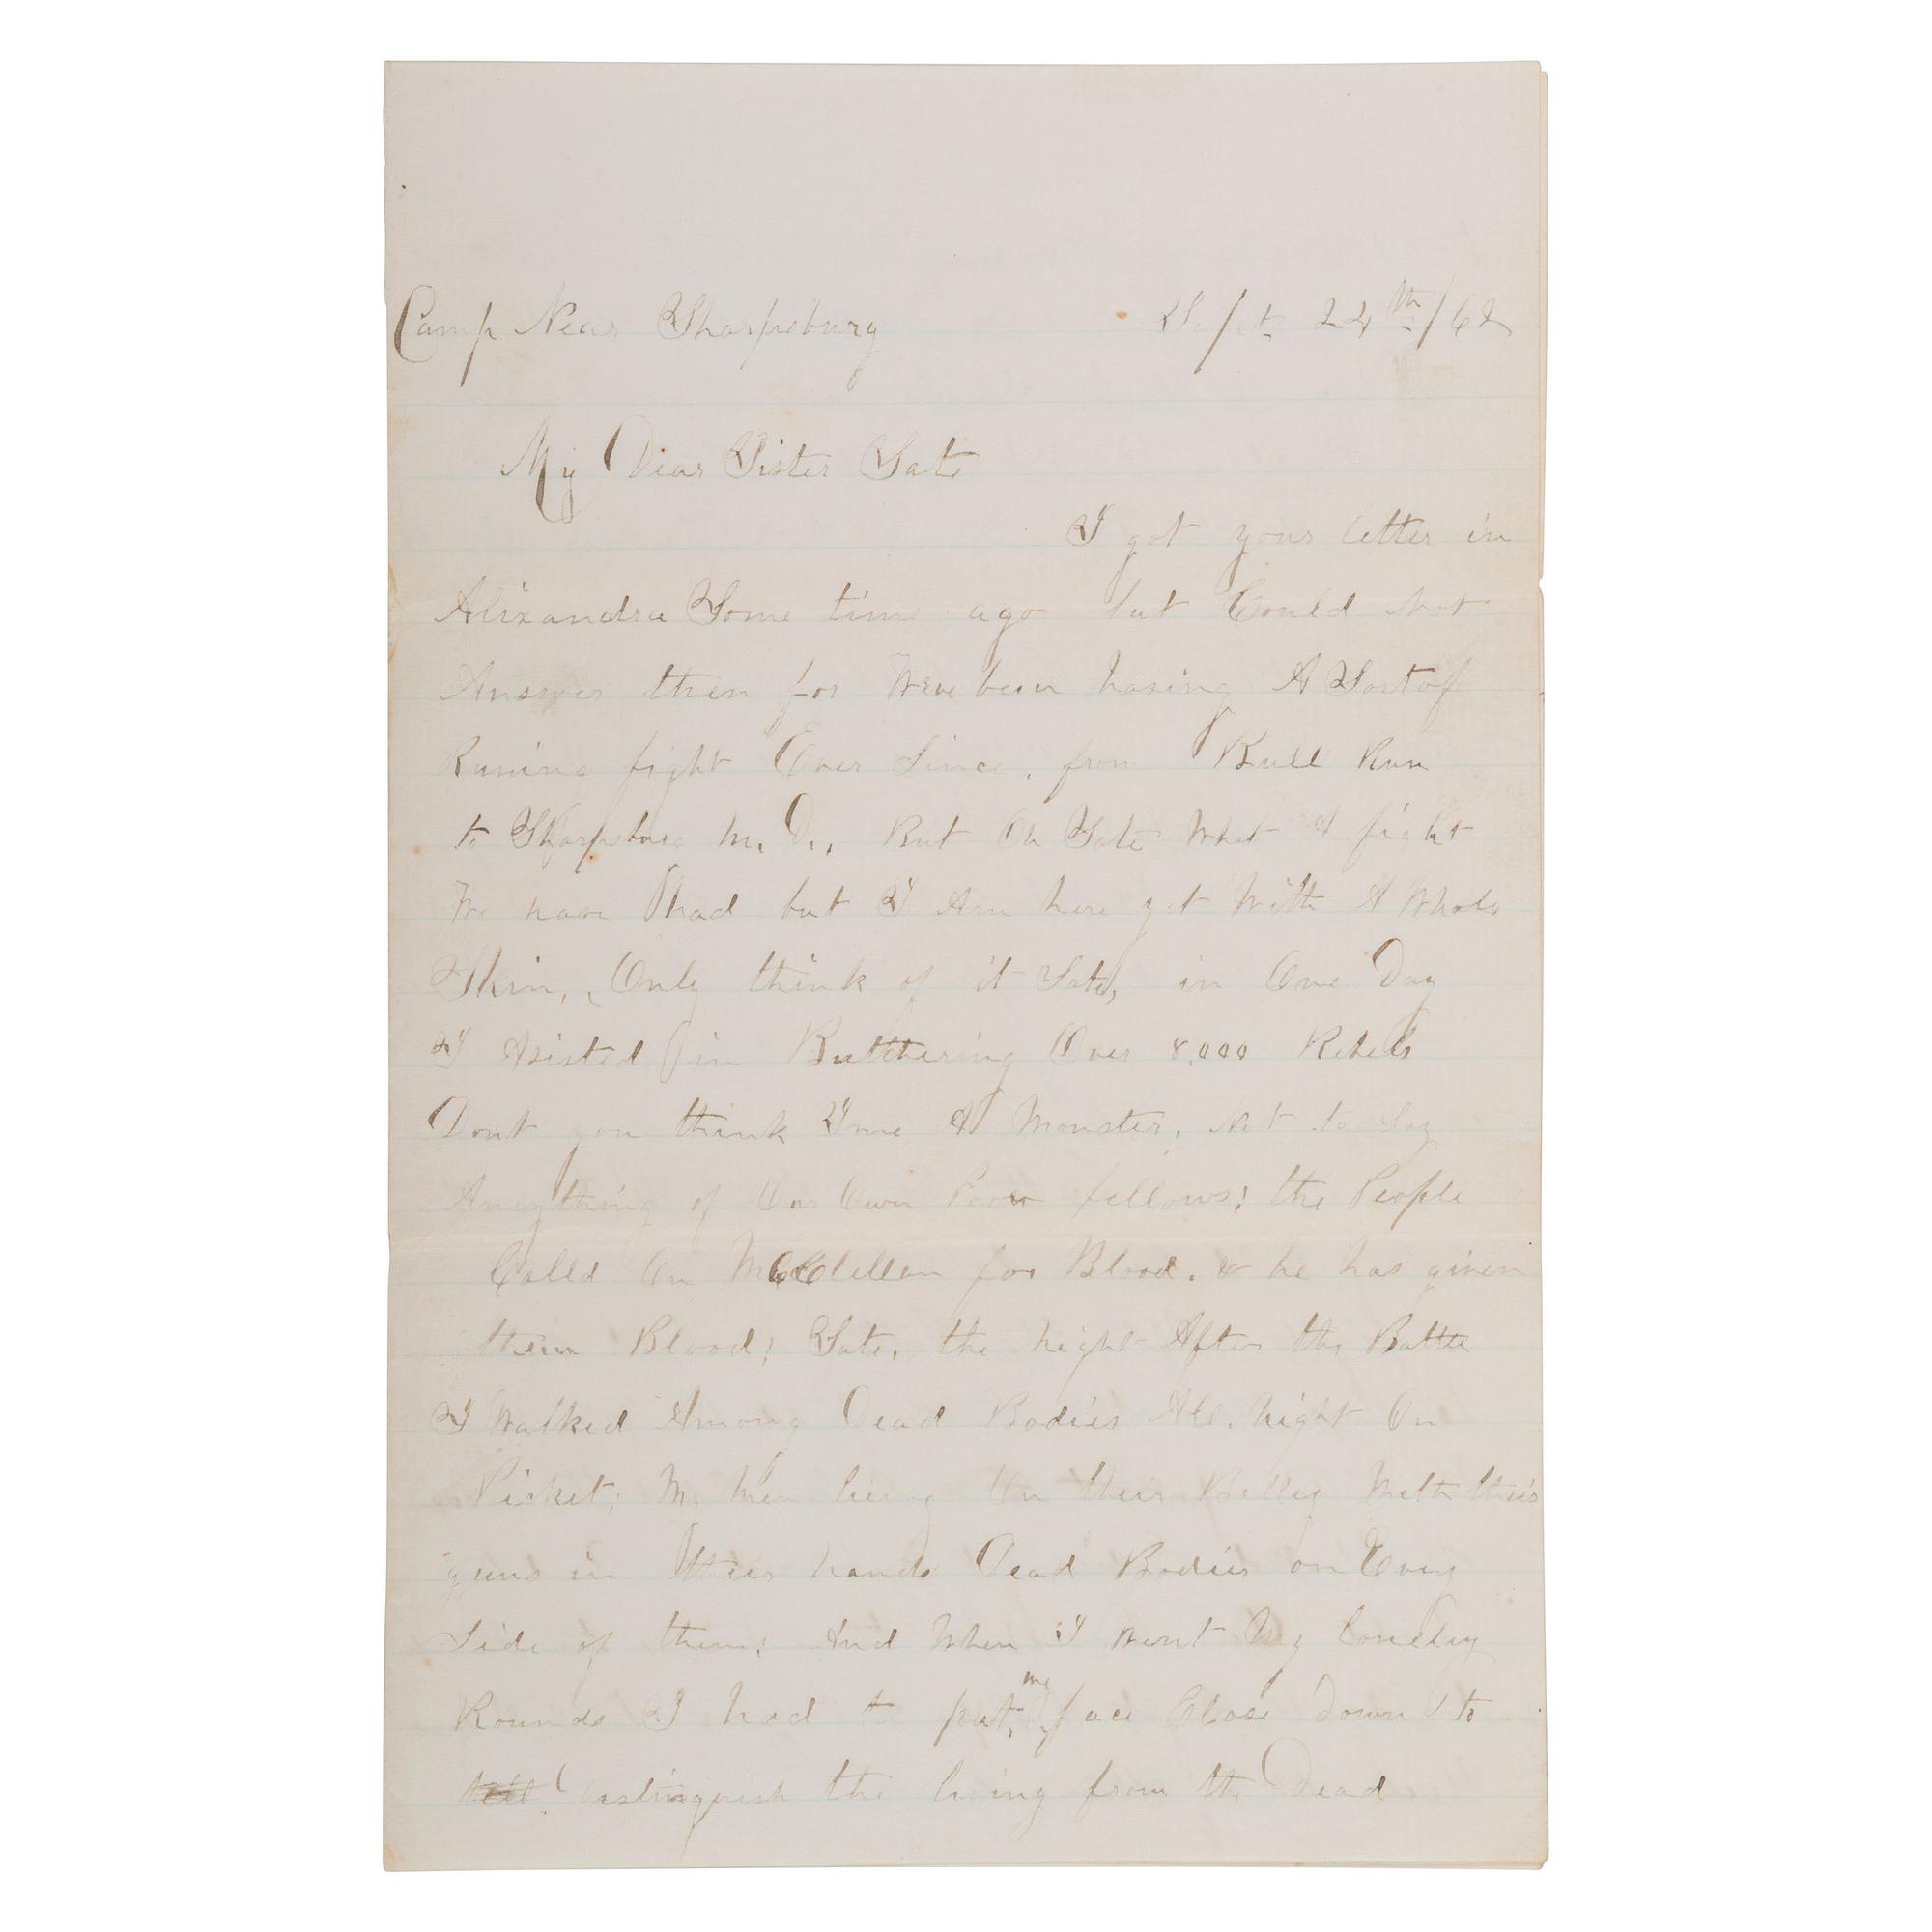 Camp Near Sharpsburg Sept. 24th/62
My Dear Sister Sate
I got your letter in
Alixandra Some time ago but Could Not
Answer then for Weve been having A Sort of
Runing fight Ever Since, from Bull Run
to Sharpsburg M.D., But Oh Sate What A fight
We have had but I Am here yet With A Whole
Skin, Only think of it Sate, in One Day
I Asisted in Buttchering Over 8,000 Rebels
Dont you think I'me A Monster, Not to Say
Anaything of Our Own Poor fellows; the People
Calld On McClellan for Blood. & he has given
them Blood; Sate, the night After the Battle
I Walked Among Dead Bodies All night On
Picket; My Men lieing On their Belley With their
guns in their hands Dead Bodies on Every
Side of them; And When I Went My lonelay
Rounds I had to put my face Close Down to
tell distinguish the living from the Dead